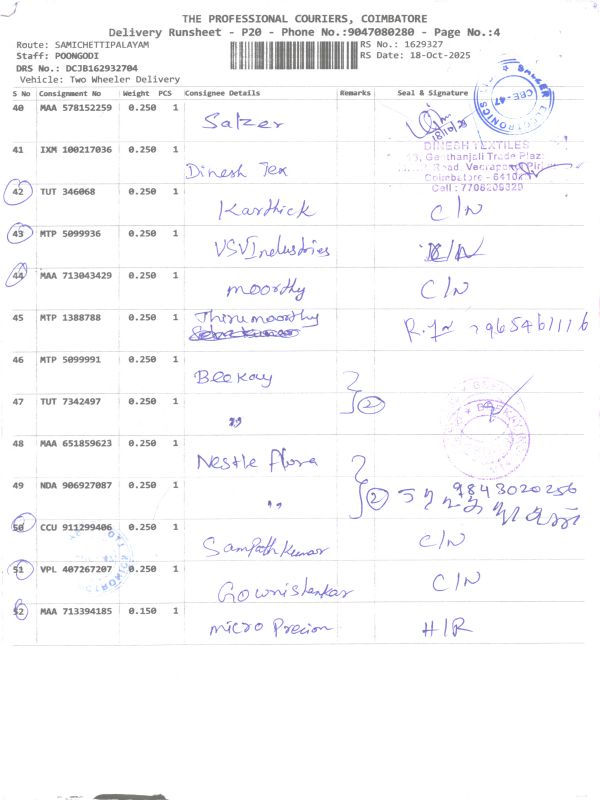 THE PROFESSIONAL COURIERS, COIMBATORE
Delivery Runsheet - P20 - Phone No.:9047080280 - Page No.:4
Route: SAMICHETTIPALAYAM RS No.: 1629327
Staff: POONGODI RS Date: 18-Oct-2025
DRS No.: DCJB162932704
Vehicle: Two Wheeler Delivery
S No Consignment No Weight PCS Consignee Details Remarks Seal & Signature
40 MAA 578152259 0.250 1 Salzer 18/10/25
SALZER ELECTRONICS CBE-47
41 IXM 100217036 0.250 1 Dinesh Tex
DINESH TEXTILES
Geethanjali Trade Plaz
Road, Veerapan
Coimbatore - 6410
Cell : 7708206320
42 TUT 346068 0.250 1 Karthick C/N
43 MTP 5099936 0.250 1 VSV Industries
44 MAA 713043429 0.250 1 moorthy C/N
45 MTP 1388788 0.250 1 Thirumoorthy 965461116
46 MTP 5099991 0.250 1 Beekay
47 TUT 7342497 0.250 1 " 2
48 MAA 651859623 0.250 1 Nestle flora
49 NDA 906927087 0.250 1 " 2 9843020256
50 CCU 911299406 0.250 1 Sampath Kumar C/N
51 VPL 407267207 0.250 1 Gowrishankar C/N
52 MAA 713394185 0.150 1 micro Precion H/R